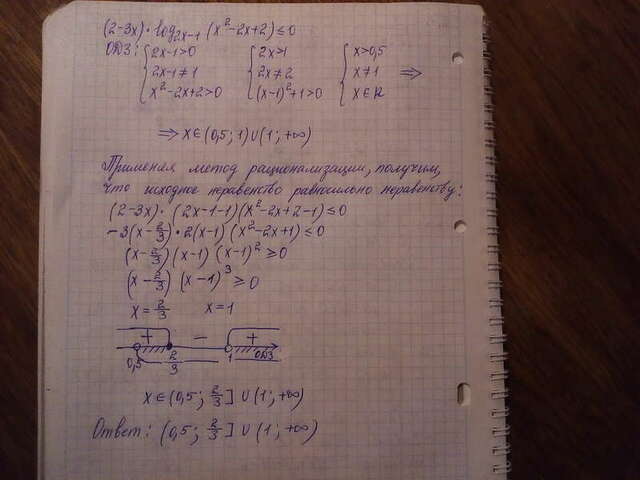 (2-3x)·log₂ₓ₋₁(x²-2x+2)≤0
ОДЗ: { 2x-1>0 { 2x>1 { x>0,5
2x-1≠1 2x≠2 x≠1 ⇒
x²-2x+2>0 (x-1)²+1>0 x∈R
⇒ x∈(0,5; 1)∪(1; +∞)
Применяя метод рационализации, получим,
что исходное неравенство равносильно неравенству:
(2-3x)·(2x-1-1)(x²-2x+2-1)≤0
-3(x-2/3)·2(x-1)(x²-2x+1)≤0
(x-2/3)(x-1)(x-1)²≥0
(x-2/3)(x-1)³≥0
x=2/3 x=1
+ - +
0,5 2/3 1 ОДЗ
x∈(0,5; 2/3]∪(1; +∞)
Ответ: (0,5; 2/3]∪(1; +∞)